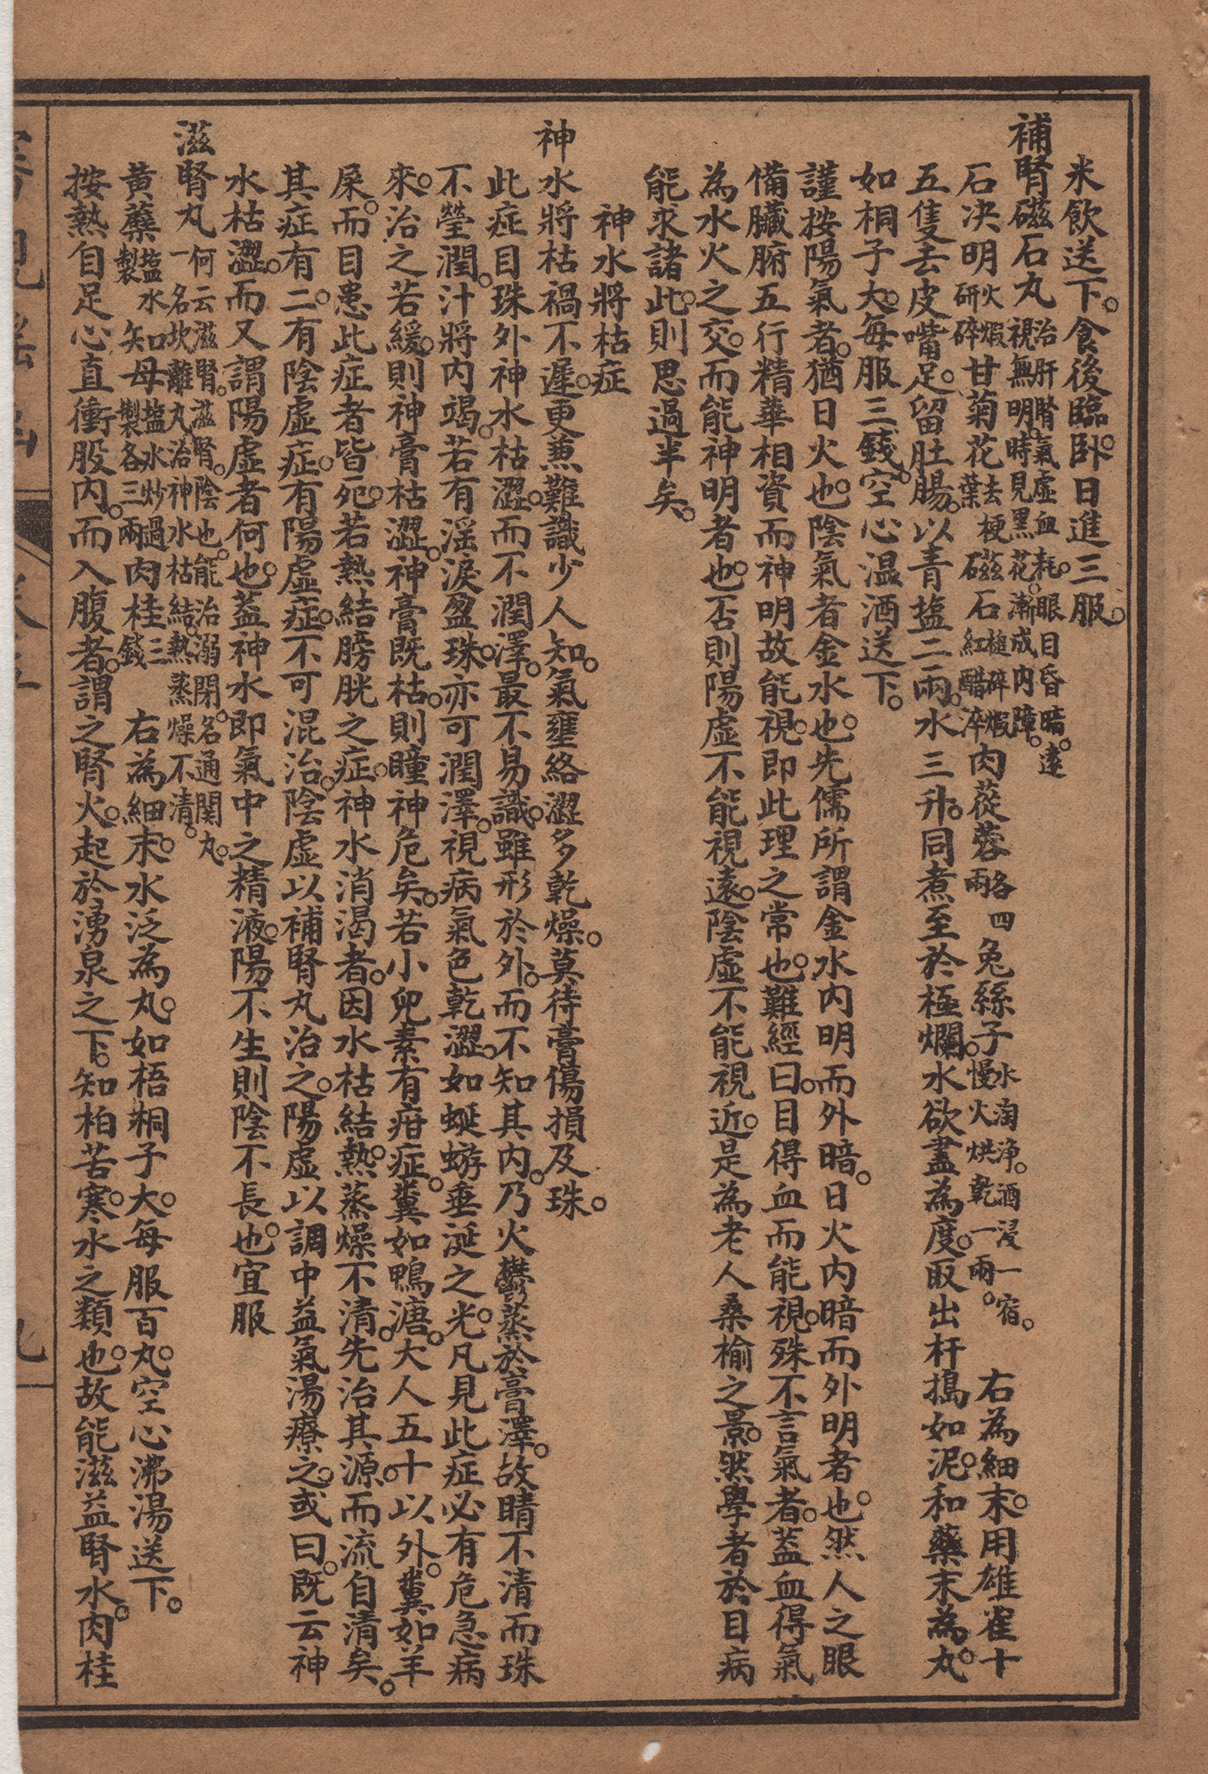 米飲送下。食後臨卧。日進三服。
補腎磁石丸 治肝腎氣虛血耗。眼目昏暗。遠視無明。時見黑花。漸成內障。
石決明 火煆研碎 甘菊花 去梗葉 磁石 槌碎煆紅醋淬 肉蓯蓉 各四兩 兔絲子 水淘淨。酒浸一宿。慢火烘乾一兩。 右為細末。用雄雀十
五隻去皮嘴足。留肚腸。以青塩二兩。水三升。同煮至於極爛。水欲盡為度。取出杵搗如泥。和藥末為丸。
如桐子大。每服三錢。空心温酒送下。
謹按陽氣者。猶日火也。陰氣者金水也。先儒所謂金水內明而外暗。日火內暗而外明者也。然人之眼
備臟腑五行精華相資而神明故能視。即此理之常也。難經曰。目得血而能視。殊不言氣者。葢血得氣
為水火之交。而能神明者也。否則陽虛不能視遠。陰虛不能視近。是為老人桑榆之景。然學者於目病
能求諸此。則思過半矣。
神水將枯症
神水將枯禍不遲。更兼難識少人知。氣壅絡澀多乾燥。莫待膏傷損及珠。
此症目珠外神水枯澀。而不潤澤。最不易識。雖形於外。而不知其內。乃火鬱蒸於膏澤。故睛不清而珠
不瑩潤。汁將內竭。若有淫淚盈珠。亦可潤澤。視病氣色乾澀。如蜒蝣垂涎之光。凡見此症必有危急病
來。治之若緩。則神膏枯澀。神膏既枯。則瞳神危矣。若小兒素有疳症。糞如鴨溏。大人五十以外。糞如羊
屎。而目患此症者皆死。若熱結膀胱之症。神水消渴者。因水枯結熱。蒸燥不清。先治其源。而流自清矣。
其症有二。有陰虛症。有陽虛症。不可混治。陰虛以補腎丸治之。陽虛以調中益氣湯療之。或曰。既云神
水枯澀。而又謂陽虛者何也。葢神水即氣中之精液。陽不生則陰不長也。宜服
滋腎丸 何云滋腎。滋腎。陰也。能治溺閉。名通関丸。一名坎離丸。治神水枯結。熱蒸燥不清。
黄蘗 塩水製 知母 塩水炒過製各三兩 肉桂 三錢 右為細末。水泛為丸。如梧桐子大。每服百丸。空心沸湯送下。
按熱自足心直衝股內。而入腹者。謂之腎火。起於湧泉之下。知柏苦寒。水之類也。故能滋益腎水。肉桂